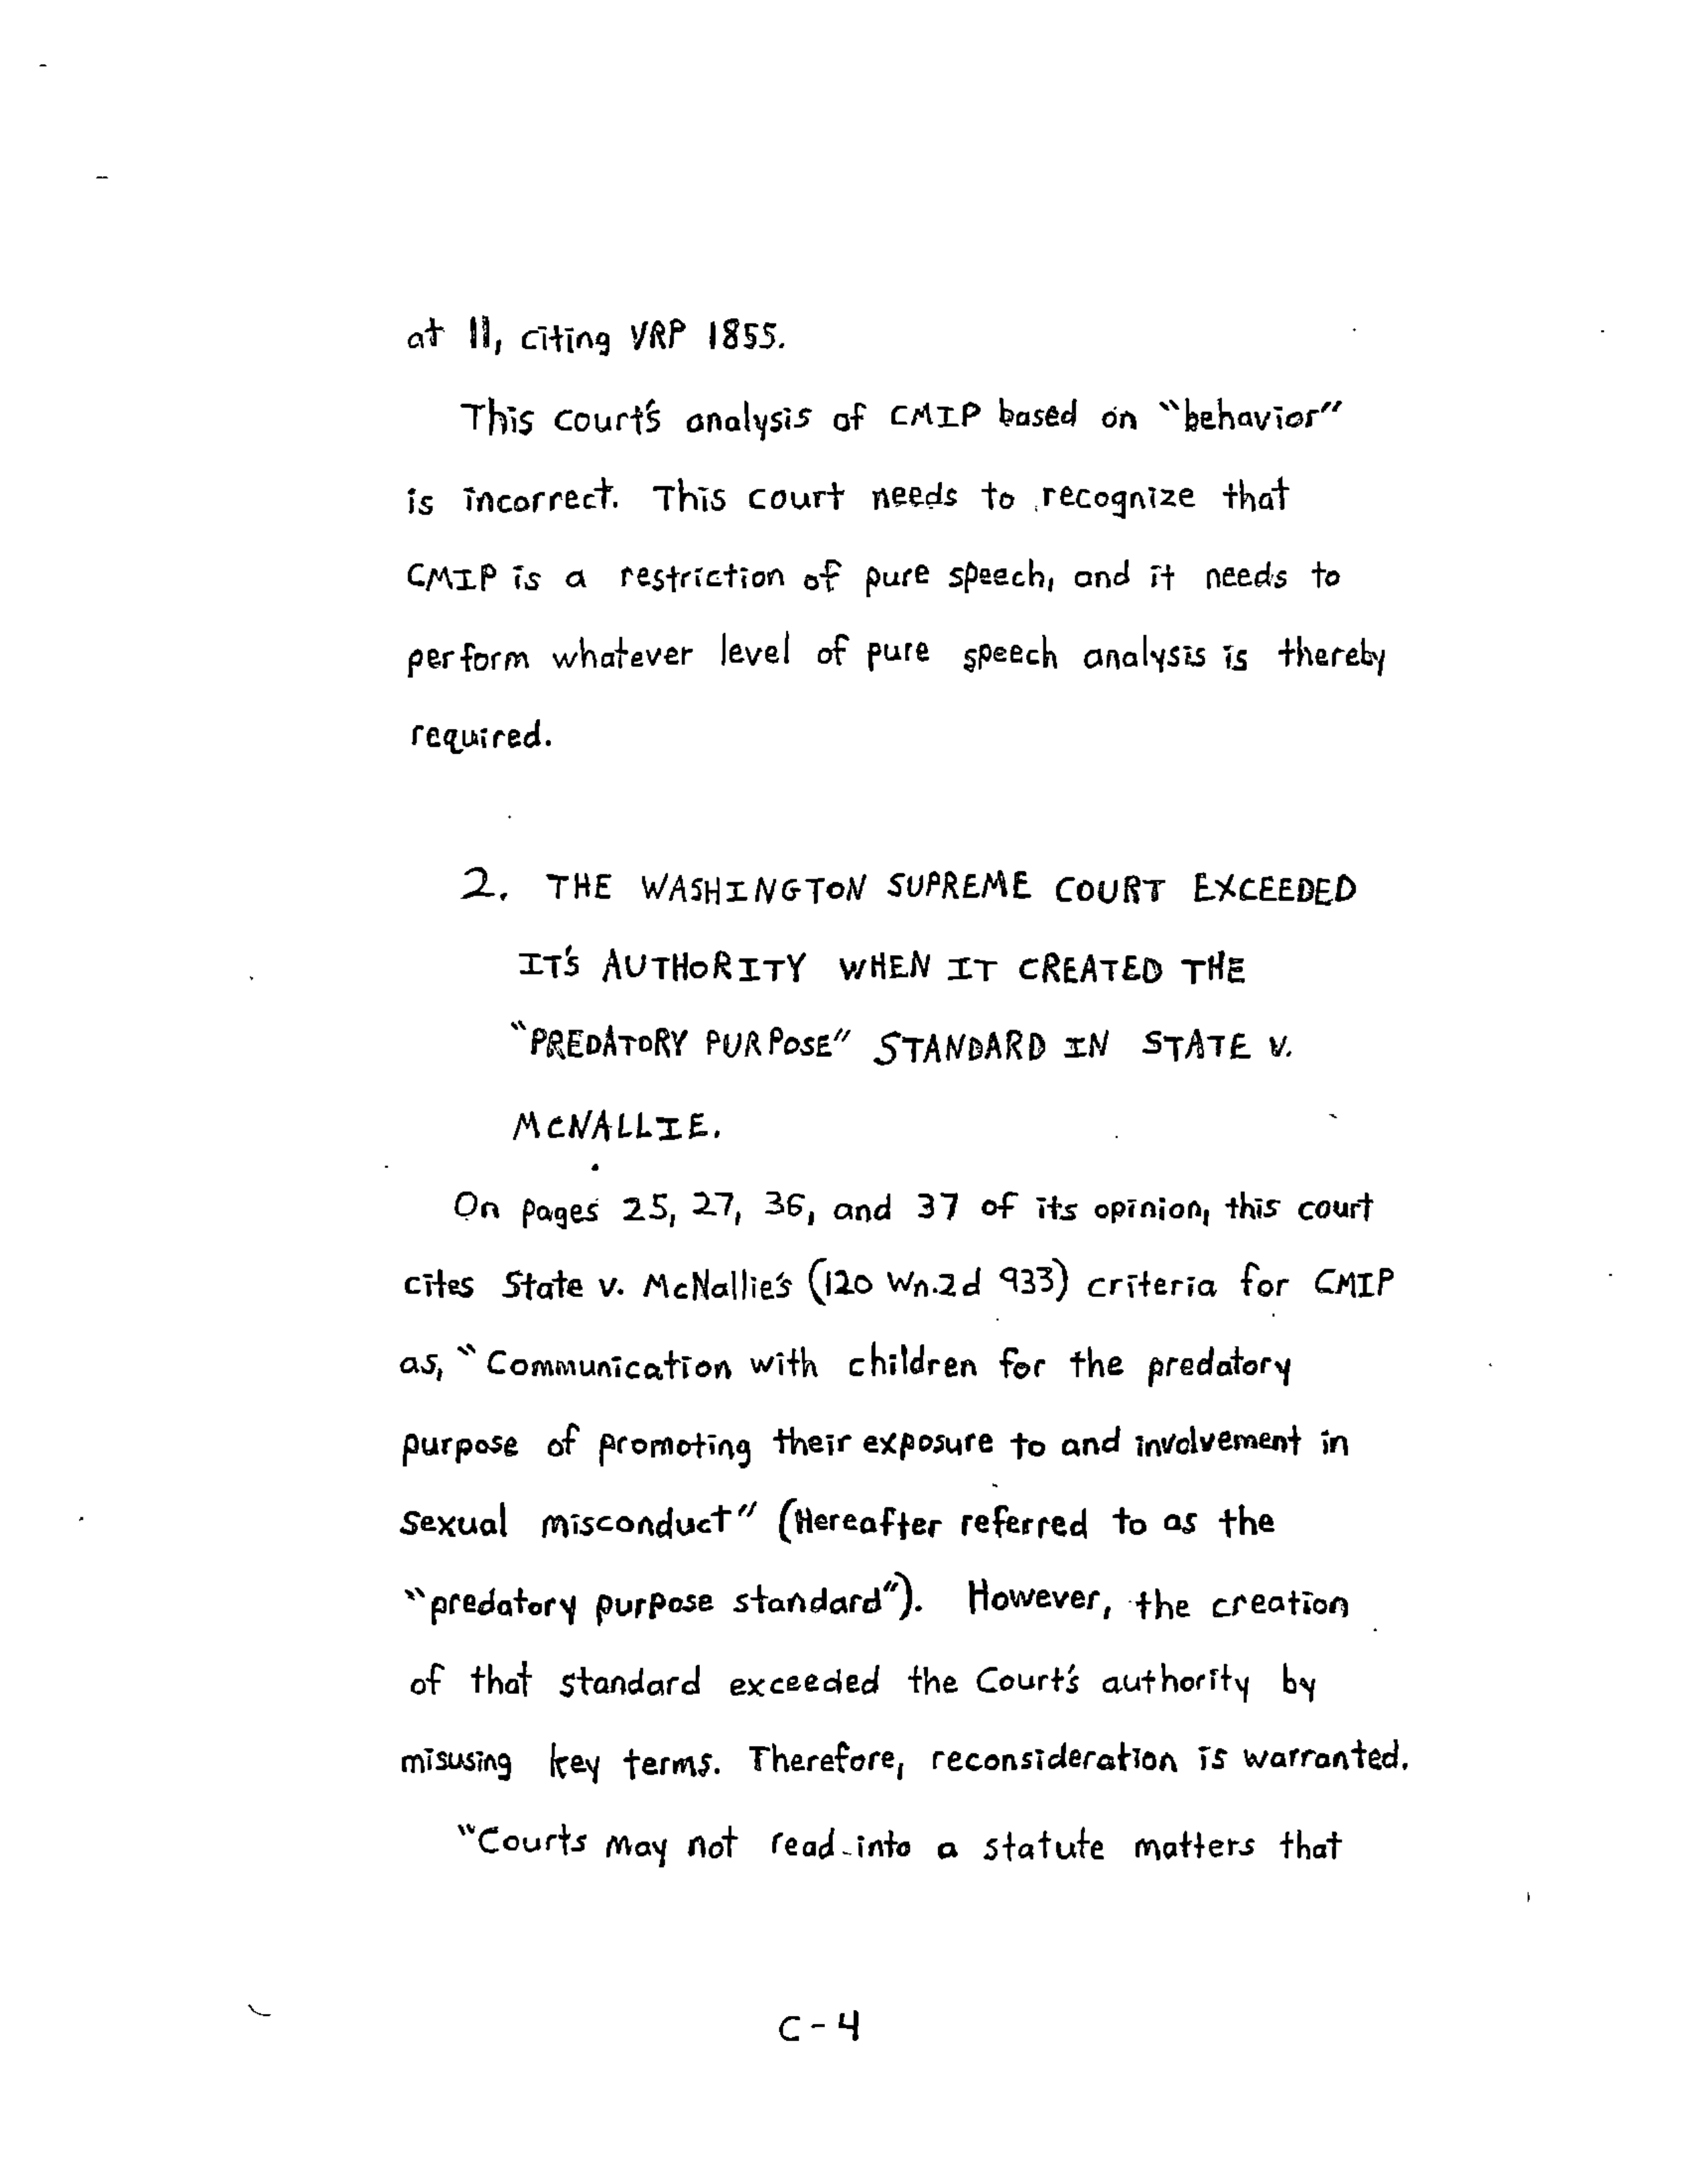 at 11, citing VRP 1855.
This court's analysis of CMIP based on "behavior"
is incorrect. This court needs to recognize that
CMIP is a restriction of pure speech, and it needs to
perform whatever level of pure speech analysis is thereby
required.
2. THE WASHINGTON SUPREME COURT EXCEEDED
IT'S AUTHORITY WHEN IT CREATED THE
"PREDATORY PURPOSE" STANDARD IN STATE V.
MCNALLIE.
On pages 25, 27, 36, and 37 of its opinion, this court
cites State v. McNallie's (120 Wn.2d 933) criteria for CMIP
as, "Communication with children for the predatory
purpose of promoting their exposure to and involvement in
sexual misconduct" (Hereafter referred to as the
"predatory purpose standard"). However, the creation
of that standard exceeded the Court's authority by
misusing key terms. Therefore, reconsideration is warranted.
"Courts may not read into a statute matters that
C-4